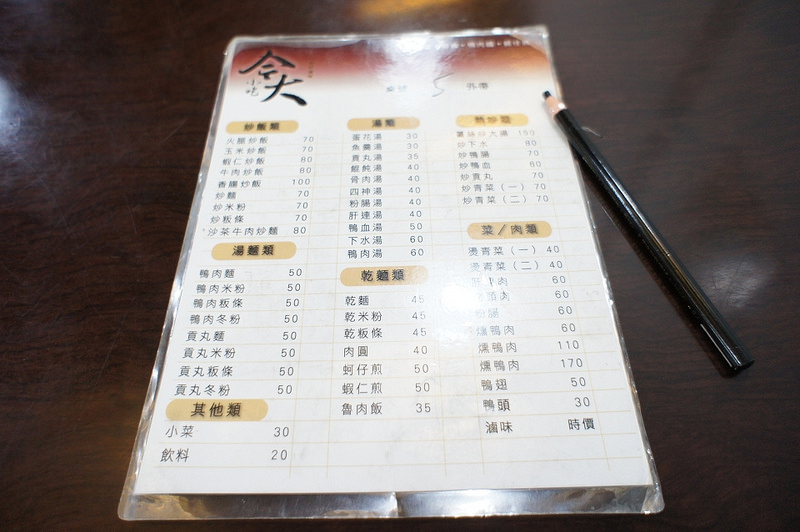 今大
小吃
桌號 5 外帶
炒飯類
火腿炒飯 70
玉米炒飯 70
蝦仁炒飯 80
牛肉炒飯 80
香腸炒飯 100
炒麵 70
炒米粉 70
炒粄條 70
沙茶牛肉炒麵 80
湯麵類
鴨肉麵 50
鴨肉米粉 50
鴨肉粄條 50
鴨肉冬粉 50
貢丸麵 50
貢丸米粉 50
貢丸粄條 50
貢丸冬粉 50
其他類
小菜 30
飲料 20
湯類
蛋花湯 30
魚羹湯 30
貢丸湯 35
餛飩湯 40
骨肉湯 40
四神湯 40
粉腸湯 40
肝連湯 40
鴨血湯 50
下水湯 60
鴨肉湯 60
乾麵類
乾麵 45
乾米粉 45
乾粄條 45
肉圓 40
蚵仔煎 50
蝦仁煎 50
魯肉飯 35
熱炒類
薑絲炒大腸 150
炒下水 80
炒鴨腸 70
炒鴨血 60
炒貢丸 70
炒青菜（一） 70
炒青菜（二） 70
菜／肉類
燙青菜（一） 40
燙青菜（二） 40
肉 60
肉 60
腸 60
燻鴨肉 60
燻鴨肉 110
燻鴨肉 170
鴨翅 50
鴨頭 30
滷味 時價